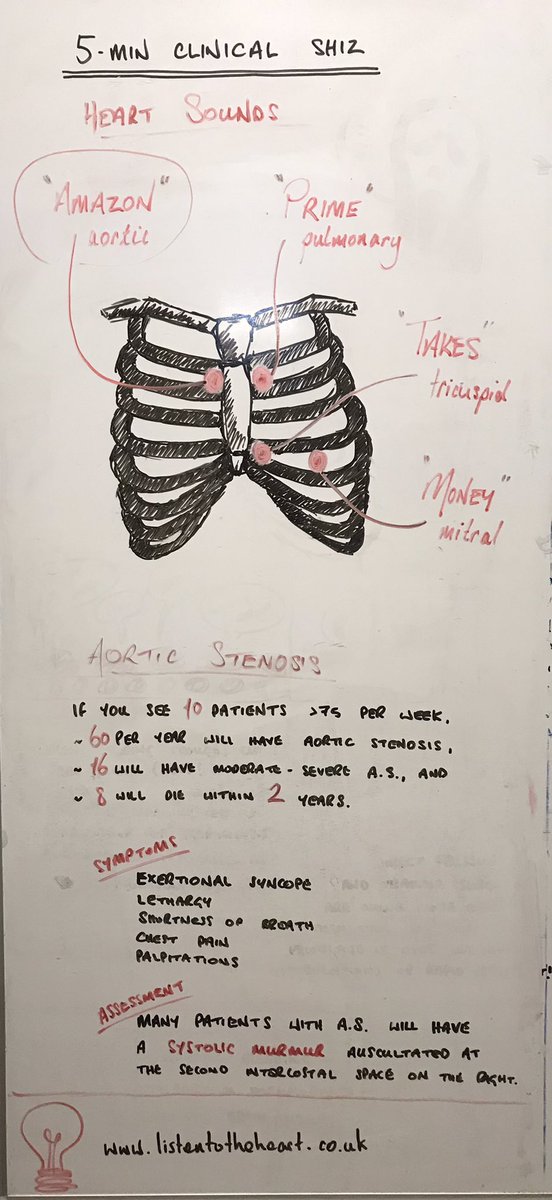 5-MIN CLINICAL SHIZ
HEART SOUNDS
"AMAZON"
aortic
"PRIME"
pulmonary
"TAKES"
tricuspid
"MONEY"
mitral
AORTIC STENOSIS
IF YOU SEE 10 PATIENTS >75 PER WEEK,
~ 60 PER YEAR WILL HAVE AORTIC STENOSIS,
~ 16 WILL HAVE MODERATE - SEVERE A.S., AND
~ 8 WILL DIE WITHIN 2 YEARS.
SYMPTOMS
EXERTIONAL SYNCOPE
LETHARGY
SHORTNESS OF BREATH
CHEST PAIN
PALPITATIONS
ASSESSMENT
MANY PATIENTS WITH A.S. WILL HAVE
A SYSTOLIC MURMUR AUSCULTATED AT
THE SECOND INTERCOSTAL SPACE ON THE RIGHT.
www.listentotheheart.co.uk